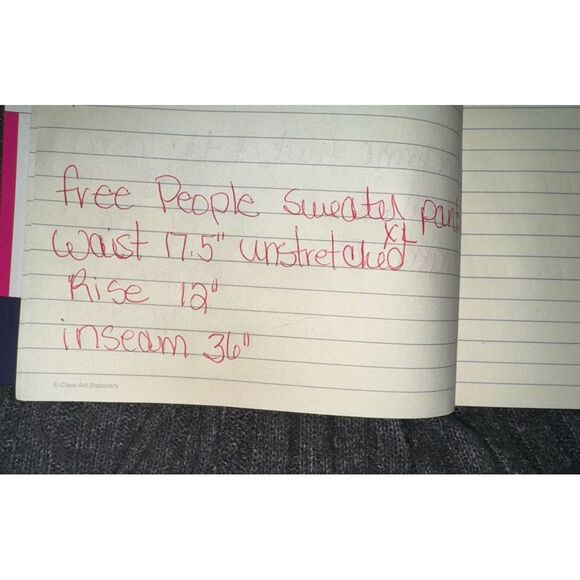 free People Sweater pant
XL
Waist 17.5" unstretched
Rise 12"
inseam 36"
© Class Act Stationery